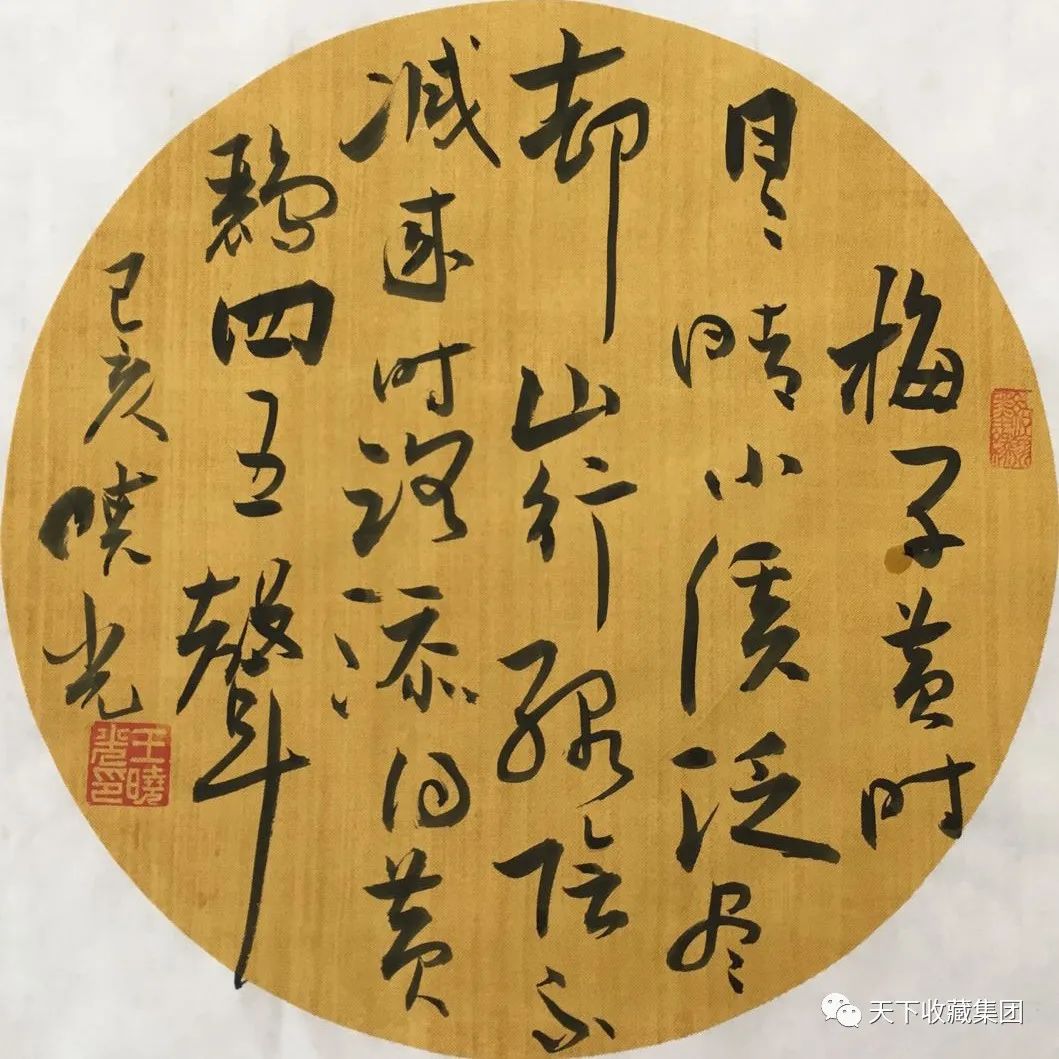 梅子黄时
日日晴小溪泛尽
却山行绿阴不
减来时路添得黄
鹂四五声
己亥晓光
王曉光印
天下收藏集团